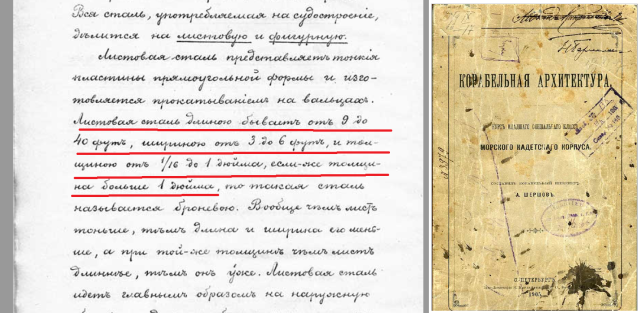 Вся сталь, употребляемая на судостроеніе,
дѣлится на листовую и фигурную.
Листовая сталь представляетъ тонкія
пластины прямоугольной формы и изго-
товляется прокатываніемъ на вальцахъ.
Листовая сталь длиною бываетъ отъ 9 до
40 футъ, шириною отъ 3 до 6 футъ, и тол-
щиною отъ 1/16 до 1 дюйма, если-же толщи-
на больше 1 дюйма, то такая сталь
называется броневою. Вообще чѣмъ листъ
тоньше, тѣмъ длина и ширина его мень-
ше, а при той-же толщинѣ чѣмъ листъ
длиннѣе, тѣмъ онъ у́же. Листовая сталь
идетъ главнымъ образомъ на наружную
КОРАБЕЛЬНАЯ АРХИТЕКТУРА.
КУРСЪ МЛАДШАГО СПЕЦІАЛЬНАГО КЛАССА
МОРСКОГО КАДЕТСКАГО КОРПУСА.
А. ШЕРШОВЪ.
С.-ПЕТЕРБУРГЪ